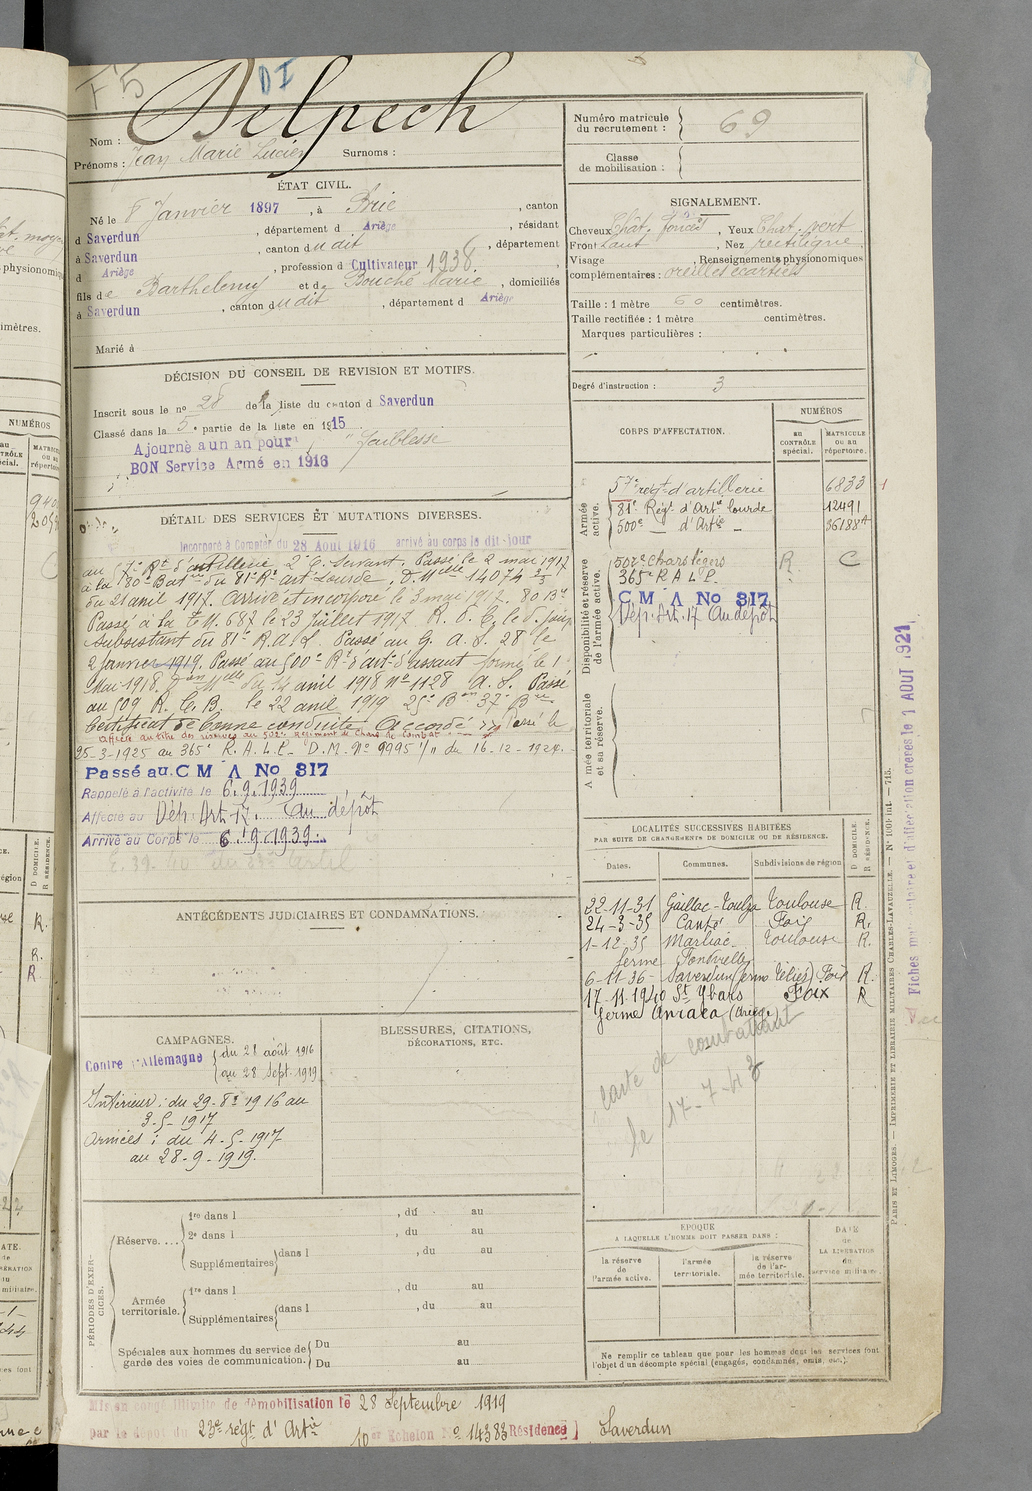 F5
DI
Delpech
Nom :
Prénoms : Jean Marie Lucien Surnoms :
Numéro matricule du recrutement : 69
Classe de mobilisation :
ÉTAT CIVIL.
Né le 8 Janvier 1897, à Brie, canton
d Saverdun, département d Ariège, résidant
à Saverdun, canton dudit, département
d Ariège, profession d Cultivateur 1938.
fils de Barthelemy et de Bouché Marie, domiciliés
à Saverdun, canton dudit, département d Ariège
Marié à
SIGNALEMENT.
Cheveux Chât. foncés, Yeux Chat. vert
Front haut, Nez rectiligne
Visage , Renseignements physionomiques
complémentaires : oreilles écartées
Taille : 1 mètre 60 centimètres.
Taille rectifiée : 1 mètre centimètres.
Marques particulières :
Degré d'instruction : 3
DÉCISION DU CONSEIL DE REVISION ET MOTIFS.
Inscrit sous le no 28 de la liste du canton d Saverdun
Classé dans la 5e partie de la liste en 1915
Ajourné a un an pour "faiblesse
BON Service Armé en 1916
DÉTAIL DES SERVICES ET MUTATIONS DIVERSES.
Incorporé à Compter du 28 Aout 1916 arrivé au corps le dit jour
au 57e Rt d'artillerie 2e C. Servant. Passé le 2 mai 1917
à la 80e Batrie du 81e Rt art Lourde, D. Mlle 14074 2/3
du 21 avril 1917. Arrivé et incorporé le 3 mai 1917. 80 Bie
Passé à la T.M. 687 le 23 juillet 1917.
Subsistant du 81e R.A.L. Passé au G. A. S. 28 le
2 janvier 1919. Passé au 500e Rt d'arte d'assaut formé le 1
Mai 1918. du 14 avril 1918 No 1128 A. S. Passé
au 509 R. C. B. le 22 avril 1919
Certificat de bonne conduite Accordé Passé le
Affecté au titre des réserves au 502e Régiment de Chars de Combat
25-3-1925 au 365e R.A.L.P. D.M. No 9995 1/11 du 16-12-1924.
Passé au C M A No 317
Rappelé à l'activité le 6.9.1939
Affecté au Dép. Art. 17. Au dépôt
Arrivé au Corps le 6.9.1939
CORPS D'AFFECTATION.
NUMÉROS
au CONTRÔLE spécial.
MATRICULE ou au répertoire.
Armée active.
57e régt d'artillerie 6833
81e Régt d'Art lourde 12491
500e d' Artie 36188A
Disponibilité et réserve de l'armée active.
502e Chars légers R. C
365e R A L P.
C M A No 317
Dép. Art. 17 Au dépôt
Armée territoriale et sa réserve.
LOCALITÉS SUCCESSIVES HABITÉES
PAR SUITE DE CHANGEMENTS DE DOMICILE OU DE RÉSIDENCE.
Dates. Communes. Subdivisions de région
D DOMICILE. R RÉSIDENCE.
22-11-31 Gaillac-Toulza Toulouse R.
24-3-35 Canté Foix R.
1-12-35 Marliac Toulouse R.
ferme Fontvielle
6-11-36 Saverdun Foix R.
17.11.1940 St Ybars Foix R
ferme (Ariège)
carte de combattant
le 17-7-43
ANTÉCÉDENTS JUDICIAIRES ET CONDAMNATIONS.
CAMPAGNES.
Contre l'Allemagne du 28 août 1916
au 28 Sept. 1919
Intérieur : du 29-8bre 1916 au
3-5-1917
Armées : du 4-5-1917
au 28-9-1919.
BLESSURES, CITATIONS,
DÉCORATIONS, ETC.
PÉRIODES D'EXERCICES.
Réserve....
1re dans l , du au
2e dans l , du au
Supplémentaires dans l , du au
Armée territoriale.
1re dans l , du au
Supplémentaires dans l , du au
Spéciales aux hommes du service de
garde des voies de communication.
Du au
Du au
EPOQUE
A LAQUELLE L'HOMME DOIT PASSER DANS :
la réserve de l'armée active.
l'armée territoriale.
la réserve de l'armée territoriale.
DATE de LA LIBÉRATION du service militaire.
Ne remplir ce tableau que pour les hommes dont les services font
l'objet d'un décompte spécial (engagés, condamnés, omis, etc.).
Mis en congé illimité de démobilisation le 28 Septembre 1919
par le dépôt du 23e régt d'Artie 10er Echelon No 14383 Résidence Saverdun
PARIS ET LIMOGES. — IMPRIMERIE ET LIBRAIRIE MILITAIRES CHARLES-LAVAUZELLE. — No 1000 int. — 715.
Fiches matriculaire et d'affectation créées le 1 AOUT 1921